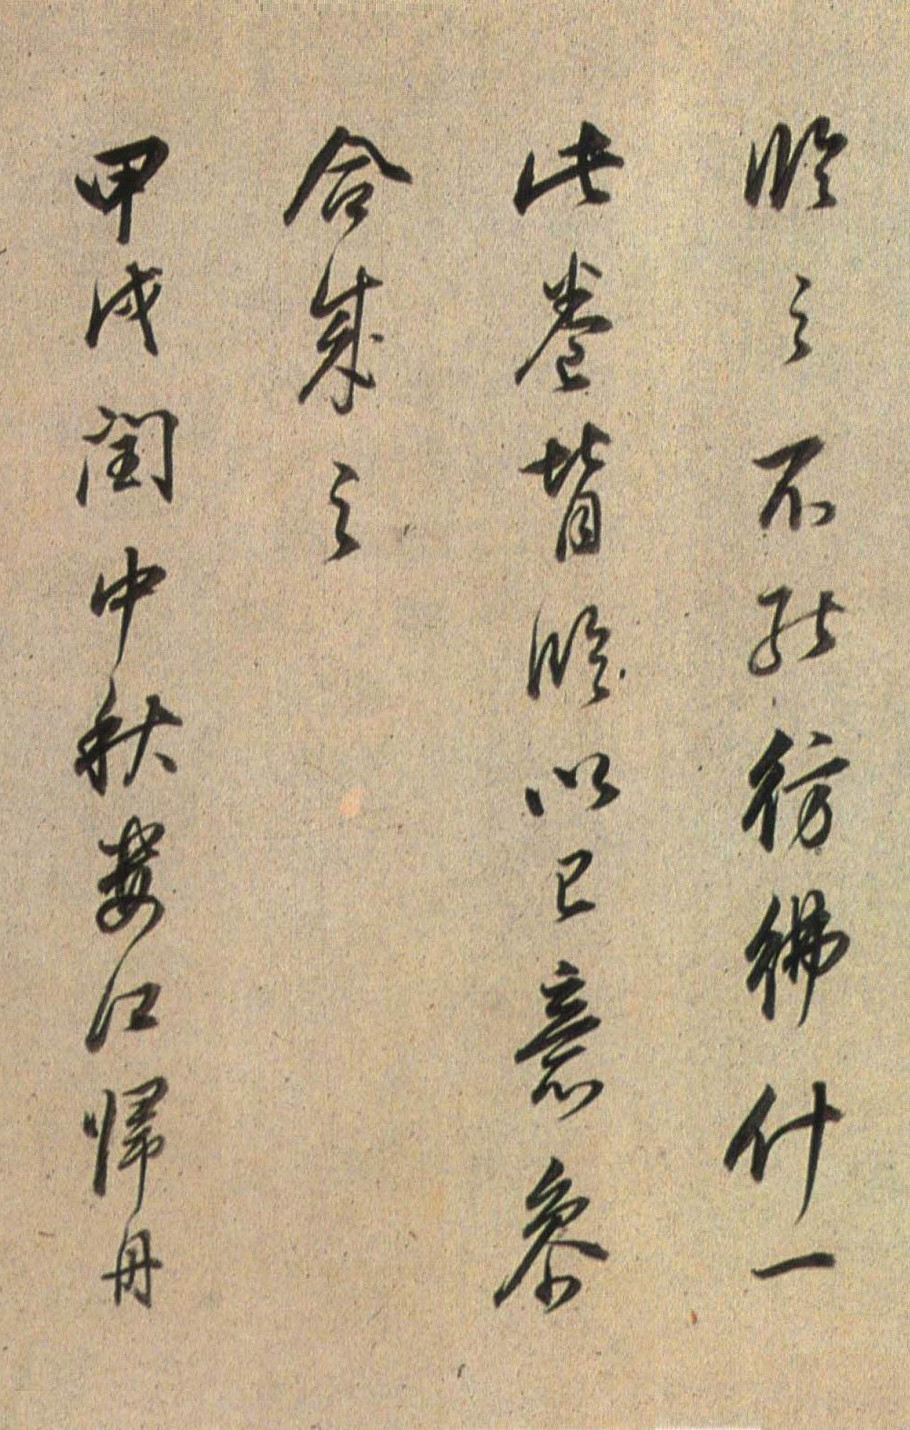 臨之不能彷彿什一
此卷背臨以己意參
合之
甲戌閏中秋婁江歸舟